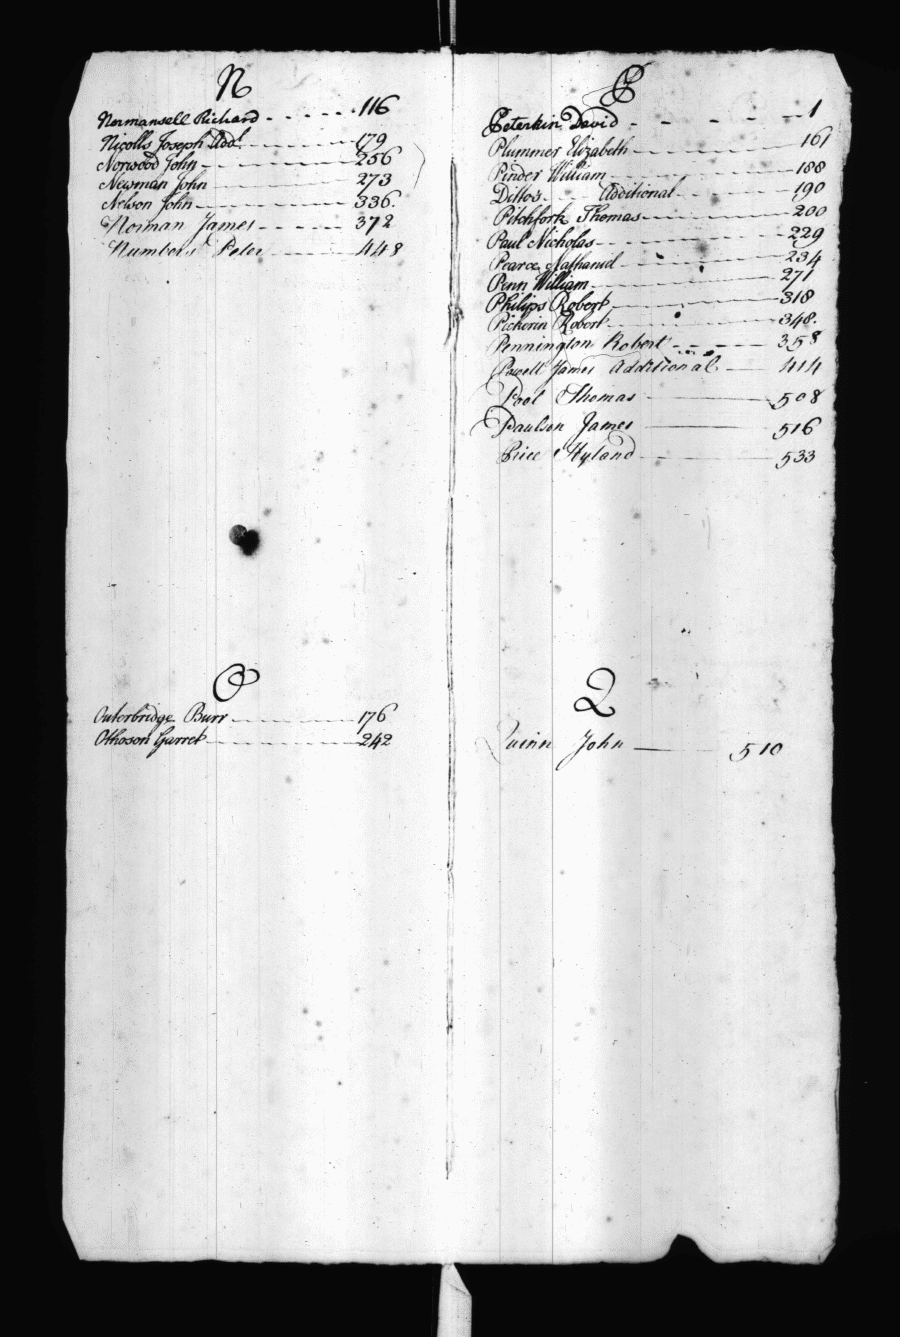 N
Normansell Richard 116
Nicolls Joseph Add.l 179
Norwood John 256
Newman John 273
Nelson John 336.
Norman James 372
Numbers Peter 448
O
Outerbridge Burr 176
Othoson Garret 242
P
Peterkin David 1
Plummer Elizabeth 161
Pinder William 188
Ditto's Additional 190
Pitchfork Thomas 200
Paul Nicholas 229
Pearce Nathaniel 234
Penn William 271
Philips Robert 318
Pickerin Robert 348.
Pennington Robert 358
Powell James Additional 414
Pool Thomas 508
Paulson James 516
Price Hyland 533
Q
Quinn John 510